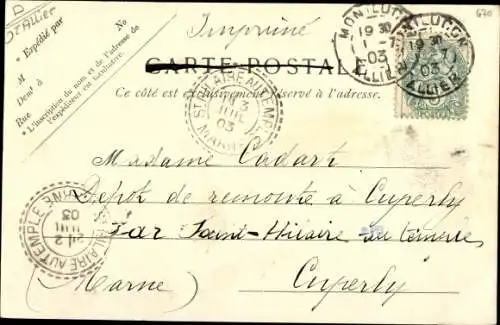 D
D'ALLIER
N°
* Expédié par
M
Demt à
Rue
* L'inscription du nom et de l'adresse de
l'expéditeur est facultative.
Imprimé
MONTLUCON
19 30
03
ALLIER
MONTLUCON
19 30
7
03
ALLIER
670
CARTE POSTALE
Ce côté est exclusivement réservé à l'adresse.
ST HILAIRE AU TEMPLE
3
JUIL
03
MARNE
Madame Cadart
Dépot de remonte à Cuperly
Par Saint-Hilaire au temple
Cuperly
(Marne)
ST HILAIRE AU TEMPLE
2
JUIL
03
MARNE